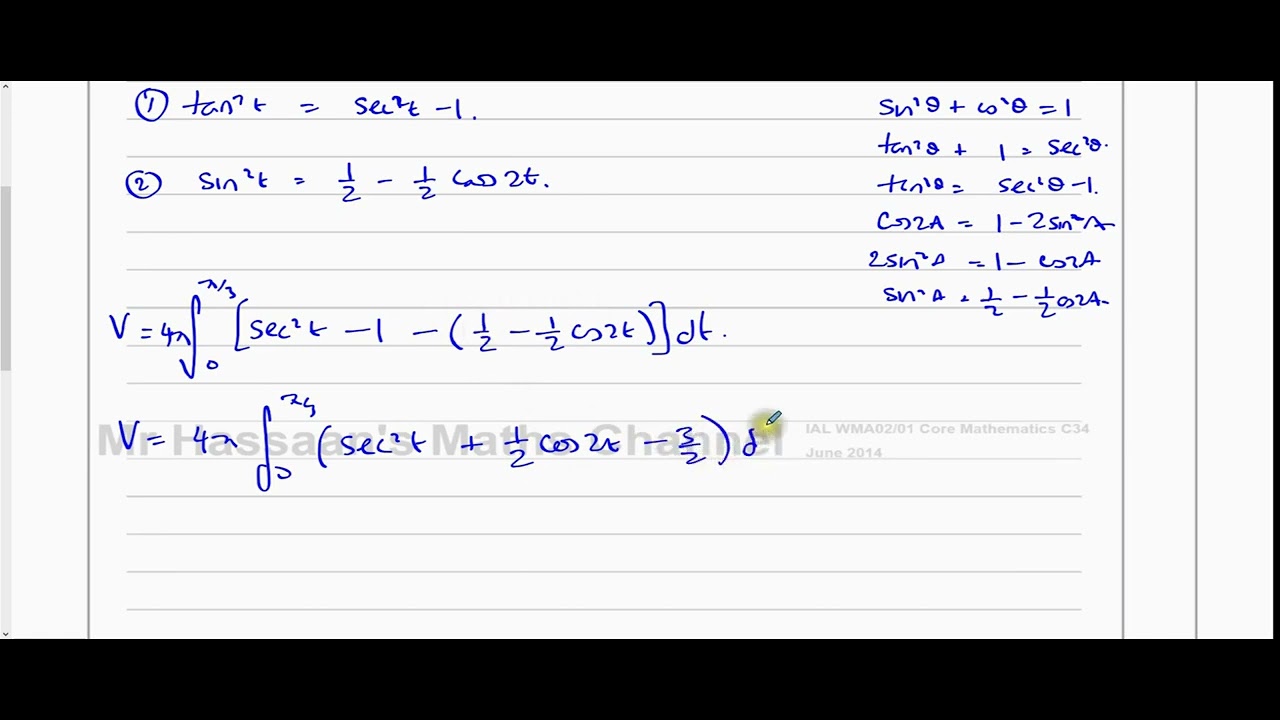 ① tan²t = sec²t - 1.
② sin²t = 1/2 - 1/2 cos2t.
sin²θ + cos²θ = 1
tan²θ + 1 = sec²θ.
tan²θ = sec²θ - 1.
cos2A = 1 - 2sin²A
2sin²A = 1 - cos2A
sin²A = 1/2 - 1/2 cos2A.
V = 4π ∫₀^π/3 [sec²t - 1 - (1/2 - 1/2 cos2t)] dt.
V = 4π ∫₀ (sec²t + 1/2 cos2t - 3/2) d
Mr Hassaan's Maths Channel
IAL WMA02/01 Core Mathematics C34
June 2014